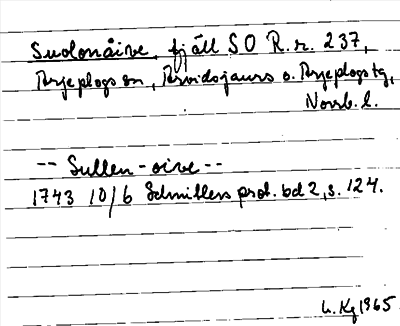 Suolonåive, fjäll SO R.r. 237,
Arjeplogs sn, Arvidsjaurs o. Arjeplogs tg,
Norrb. l.
-- Sullen-oive --
1743 10/6 Schnitlers prot. bd 2, s. 124.
L. Kg 1965.